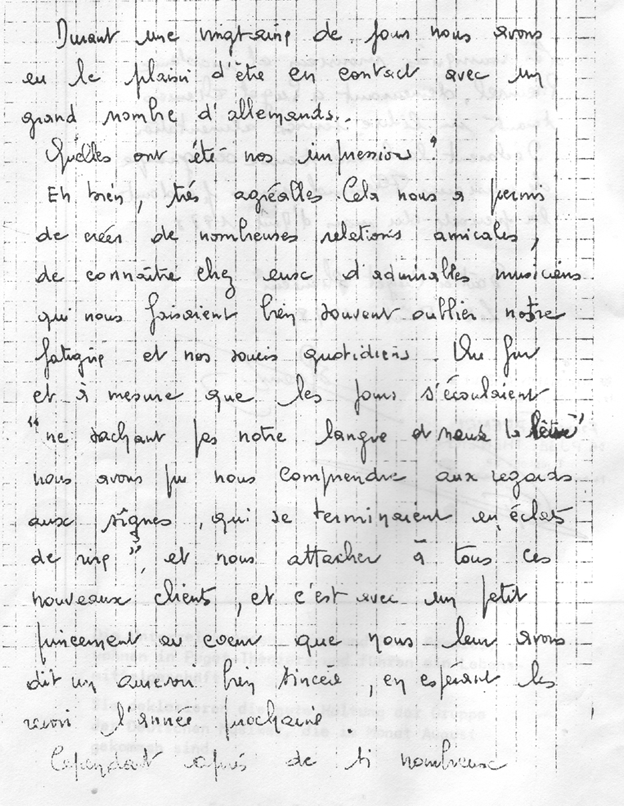 Durant une vingtaine de jours nous avons
eu le plaisir d'être en contact avec un
grand nombre d'allemands..
Quelles ont été nos impressions ?
Eh bien, très agréables. Cela nous a permis
de créer de nombreuses relations amicales,
de connaître chez eux d'admirables musiciens
qui nous faisaient bien souvent oublier notre
fatigue et nos soucis quotidiens. Au fur
et à mesure que les jours s'écoulaient
"ne sachant pas notre langue et nous la
nous avons pu nous comprendre aux regards
aux signes, qui se terminaient en éclats
de rire", et nous attacher à tous ces
nouveaux clients, et c'est avec un petit
pincement au coeur que nous leur avons
dit un aurevoir bien sincère, en espérant les
revoir l'année prochaine.
Cependant après de si nombreuse